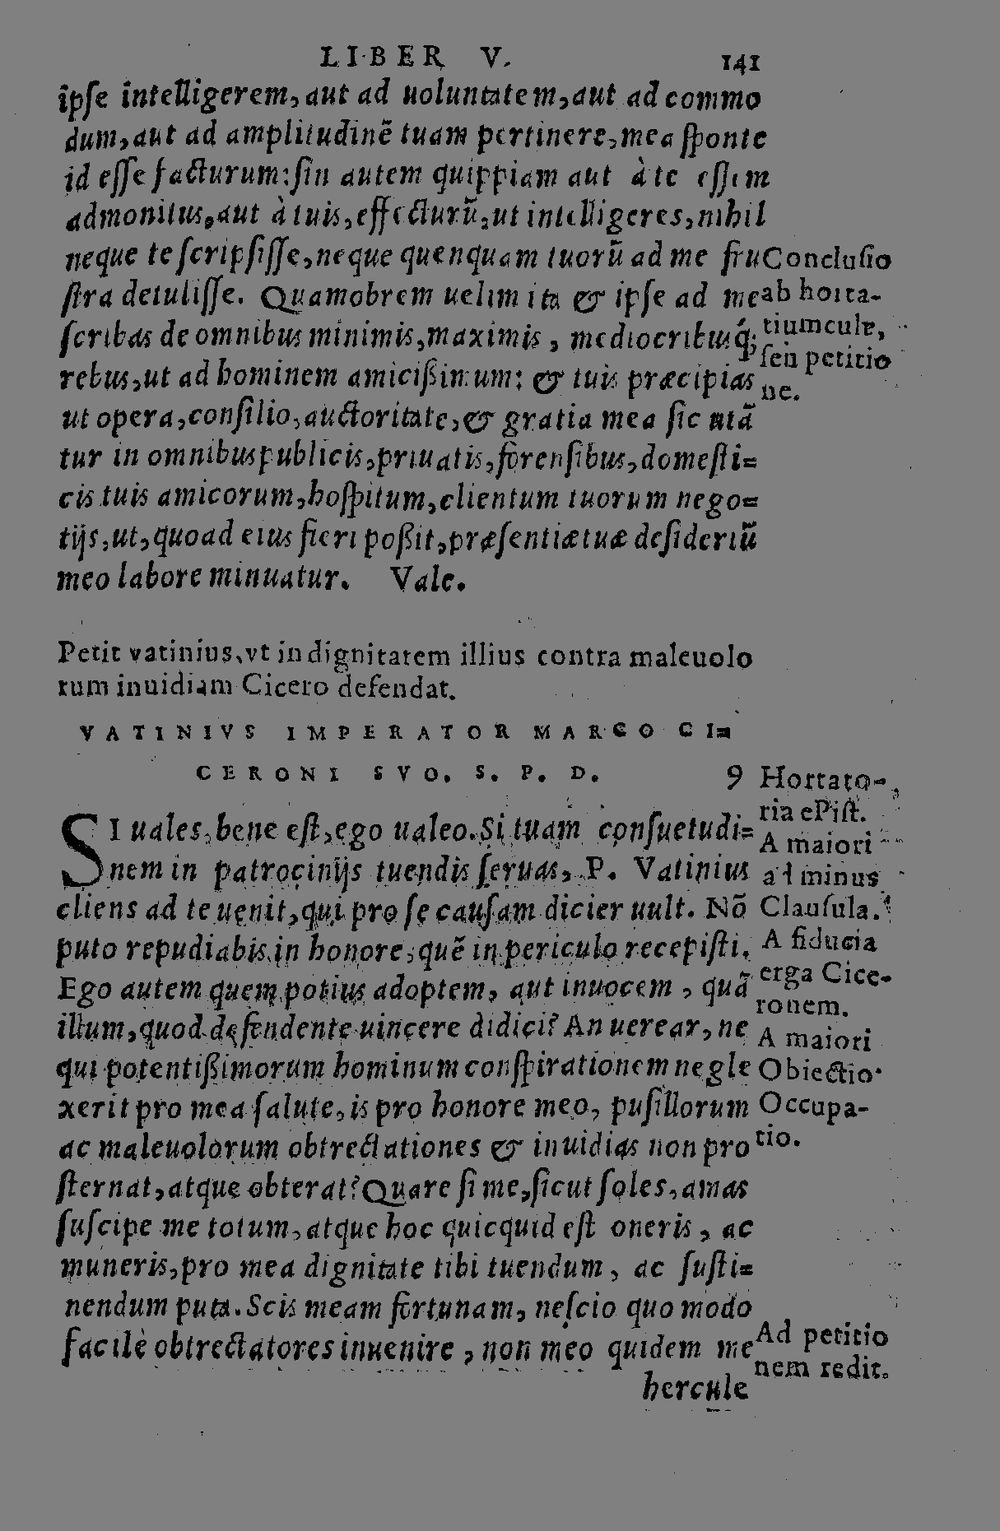 LIBER V. 141
ipſe intelligerem, aut ad uoluntatem, aut ad commo
dum, aut ad amplitudinē tuam pertinere, mea ſponte
id eſſe facturum: ſin autem quippiam aut à te eſſem
admonitus, aut à tuis, effecturū, ut intelligeres, nihil
neque te ſcripſiſſe, neque quenquam tuorū ad me fru
ſtra detuliſſe. Quamobrem uelim ita & ipſe ad me
ſcribas de omnibus minimis, maximis, mediocribusq́;
rebus, ut ad hominem amicißimum: & tuis præcipias
ut opera, conſilio, auctoritate, & gratia mea ſic utā
tur in omnibus publicis, priuatis, forenſibus, domeſti=
cis tuis amicorum, hoſpitum, clientum tuorum nego=
tijs, ut, quoad eius fieri poßit, præſentiæ tuæ deſideriū
meo labore minuatur. Vale.
Concluſio
ab horta-
tiumcule,
ſeu petitio
ne.
Petit vatinius, vt in dignitatem illius contra maleuolo
rum inuidiam Cicero defendat.
VATINIVS IMPERATOR MARCO CI=
CERONI SVO. S. P. D. 9
SI uales, bene eſt, ego ualeo. Si tuam conſuetudi=
nem in patrocinijs tuendis ſeruas, P. Vatinius
cliens ad te uenit, qui pro ſe cauſam dicier uult. Nō
puto repudiabis in honore, quē in periculo recepiſti.
Ego autem quem potius adoptem, aut inuocem, quā
illum, quod defendente uincere didici? An uerear, ne
qui potentißimorum hominum conſpirationem negle
xerit pro mea ſalute, is pro honore meo, puſillorum
ac maleuolorum obtrectationes & inuidias non pro
ſternat, atque obterat? Quare ſi me, ſicut ſoles, amas
ſuſcipe me totum, atque hoc quicquid eſt oneris, ac
muneris, pro mea dignitate tibi tuendum, ac ſuſti=
nendum puta. Scis meam fortunam, neſcio quo modo
facilè obtrectatores inuenire, non meo quidem me
hercule
Hortato-
ria ePiſt.
A maiori
ad minus
Clauſula.
A fiducia
erga Cice-
ronem.
A maiori
Obiectio
Occupa-
tio.
Ad petitio
nem redit.